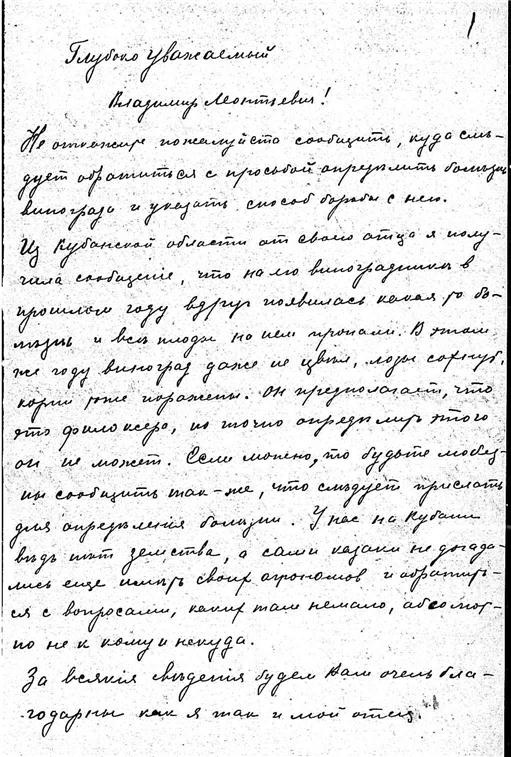 1
Глубоко уважаемый
Владимир Леонтьевич!
Не откажите пожалуйста сообщить, куда слѣ-
дуетъ обратиться с просьбой опредѣлить болѣзнь
винограда и указать способ борьбы с нею.
Из Кубанской области от своего отца я полу-
чила сообщеніе, что на его виноградникѣ в
прошлом году вдруг появилась какая то бо-
лѣзнь и всѣ плоды на нем пропали. В этом
же году виноград даже не цвѣл, лозы сохнут,
корни тоже поражены. Он предполагает, что
это филоксера, но точно опредѣлить этого
он не может. Если можно, то будьте любез-
ны сообщить так-же, что слѣдует прислать
для опредѣления болѣзни. У нас на Кубани
вѣдь нѣт земства, а сами казаки не догада-
лись еще имѣть своих агрономов и обратить-
ся с вопросами, каких там немало, абсолют-
но не к кому и некуда.
За всякія свѣдѣнія будем Вам очень бла-
годарны как я так и мой отец.